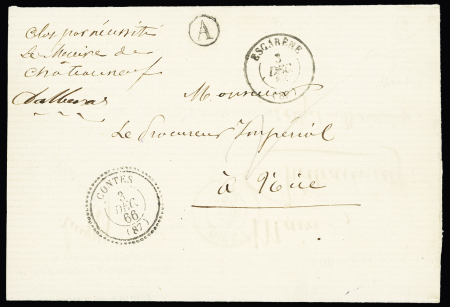 Clos par nécessité
Le Maire de
Châteauneuf
Dalbera
A
ESCARÈNE
3
DÉC.
Monsieur
Le Procureur Impérial
à Nice
CONTES
3
DÉC.
66
(87)